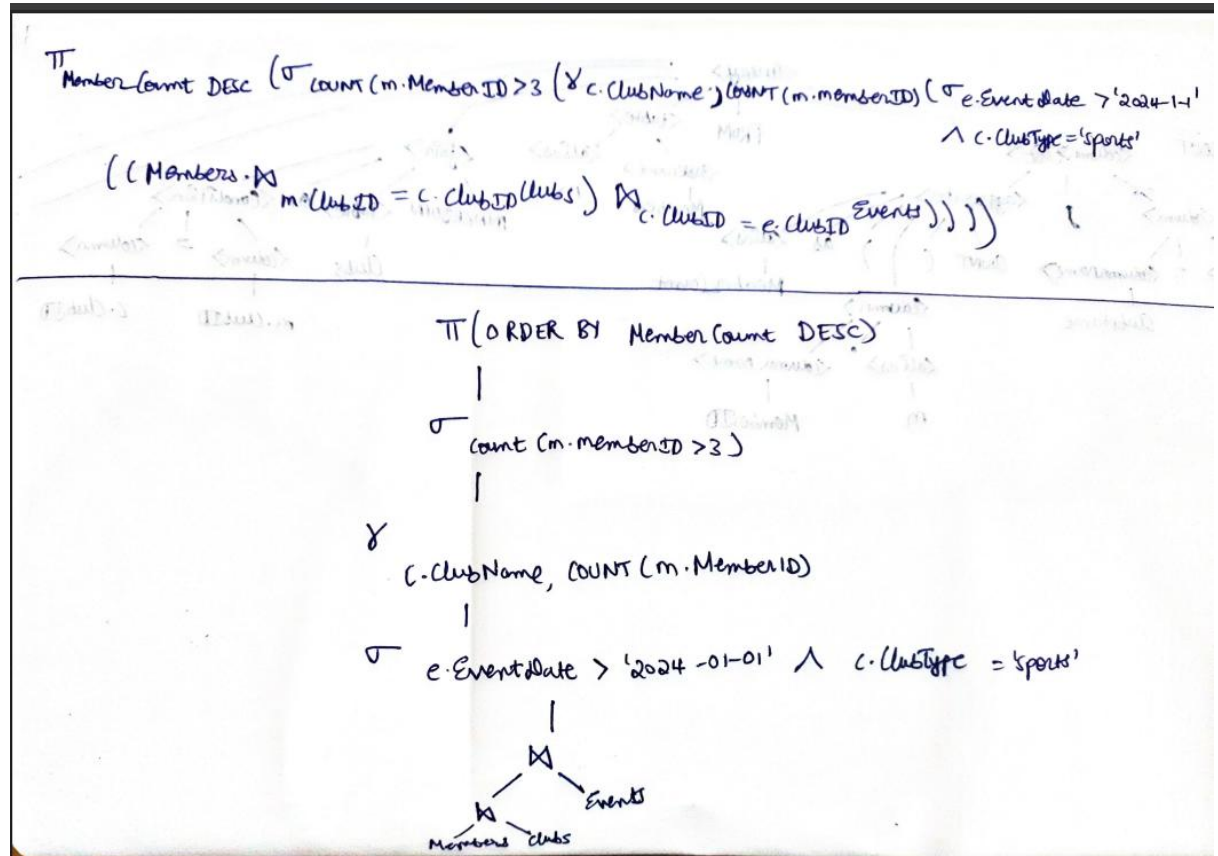 π Member Count DESC (σ COUNT (m.MemberID > 3 (γ c.ClubName, COUNT (m.memberID) (σ e.EventDate > '2024-1-1'
∧ c.ClubType = 'sports'
((Members ⋈ m.ClubID = c.ClubID Clubs) ⋈ c.ClubID = e.ClubID Events))))
π (ORDER BY Member Count DESC)
σ count (m.memberID > 3)
γ
C.ClubName, COUNT (m.MemberID)
σ e.EventDate > '2024-01-01' ∧ c.ClubType = 'sports'
⋈
⋈ Events
Members clubs